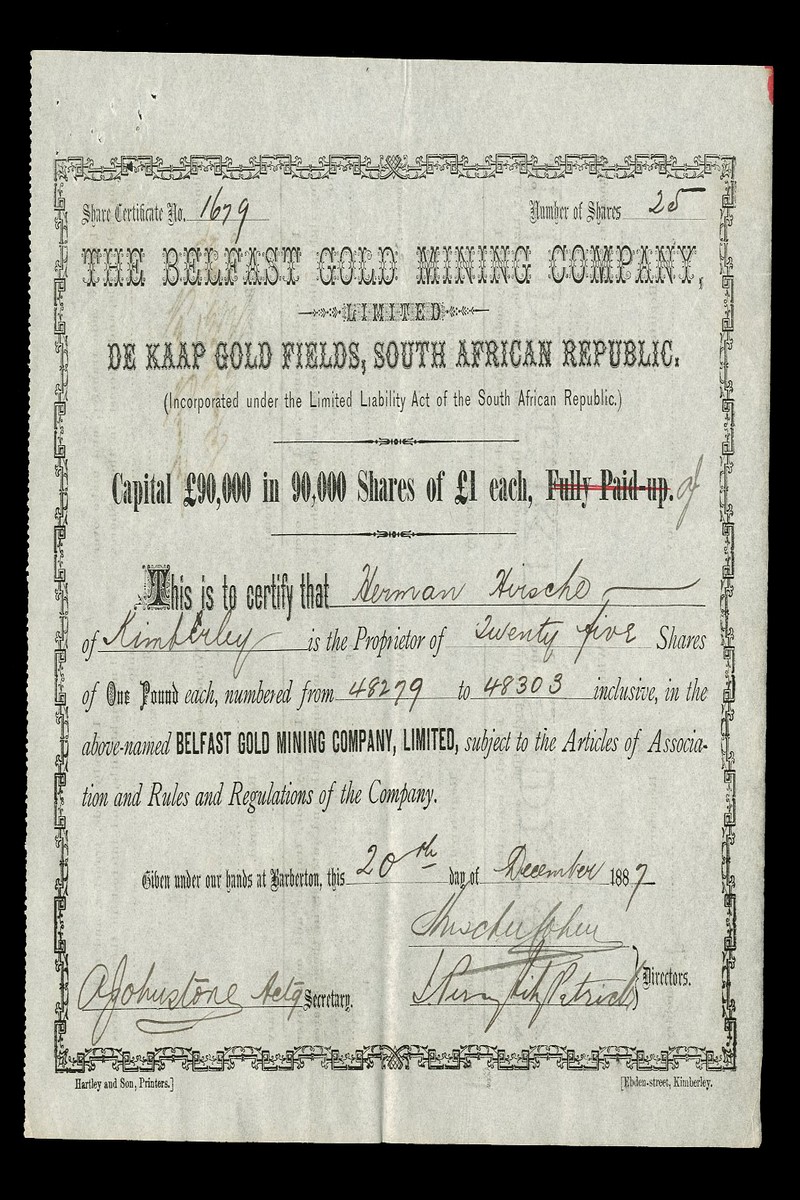 Share Certificate No. 1679 Number of Shares 25
THE BELFAST GOLD MINING COMPANY,
LIMITED
DE KAAP GOLD FIELDS, SOUTH AFRICAN REPUBLIC.
(Incorporated under the Limited Liability Act of the South African Republic.)
Capital £90,000 in 90,000 Shares of £1 each, Fully Paid-up.
This is to certify that Herman Hirsche
of Kimberley is the Proprietor of Twenty five Shares
of One Pound each, numbered from 48279 to 48303 inclusive, in the
above-named BELFAST GOLD MINING COMPANY, LIMITED, subject to the Articles of Associa-
tion and Rules and Regulations of the Company.
Given under our hands at Barberton, this 20th day of December 1887
AJohnstone Actg Secretary.
J Percy FitzPatrick Directors.
Hartley and Son, Printers.] [Ebden-street, Kimberley.